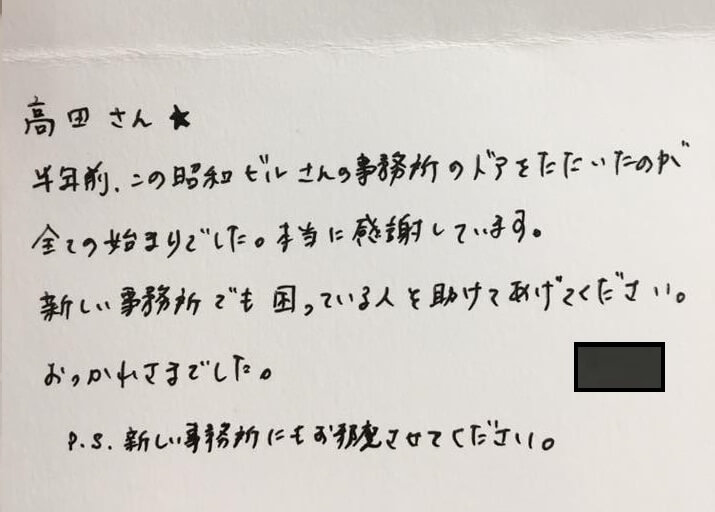 高田さん★
半年前、この昭和ビルさんの事務所のドアをたたいたのが
全ての始まりでした。本当に感謝しています。
新しい事務所でも困っている人を助けてあげてください。
おつかれさまでした。
P.S. 新しい事務所にもお邪魔させてください。